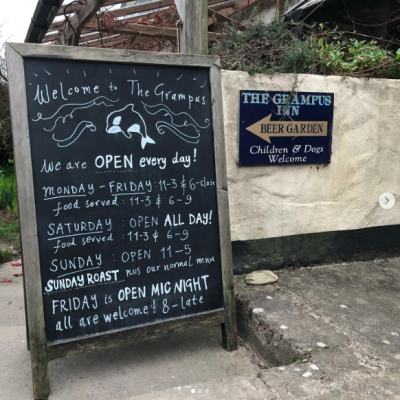 Welcome to The Grampus
We are OPEN every day!
MONDAY - FRIDAY : 11-3 & 6-close
food served : 11-3 & 6-9
SATURDAY : OPEN ALL DAY!
food served : 11-3 & 6-9
SUNDAY : OPEN 11-5
SUNDAY ROAST plus our normal menu
FRIDAY is OPEN MIC NIGHT
all are welcome! 8-late
THE GRAMPUS
INN
BEER GARDEN
Children & Dogs
Welcome